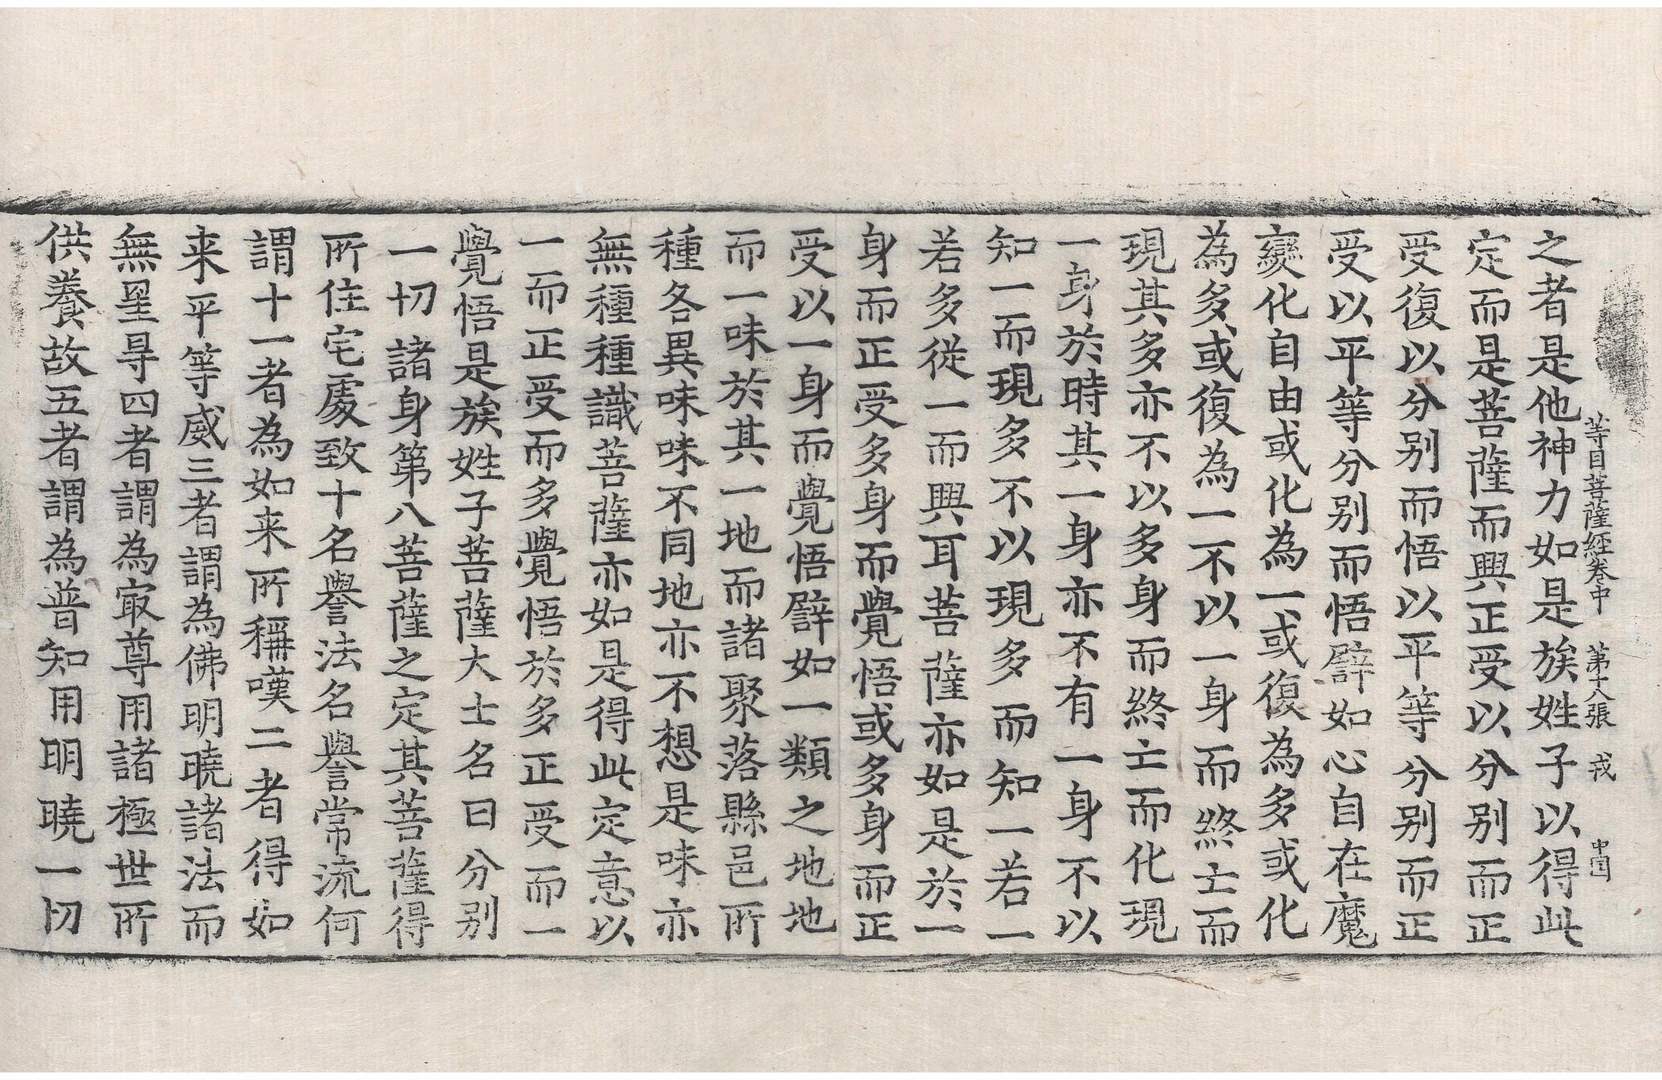 等目菩薩經卷中 第十八張 戎 中国
之者是他神力如是族姓子以得此
定而是菩薩而興正受以分別而正
受復以分別而悟以平等分別而正
受以平等分別而悟譬如心自在魔
變化自由或化為一或復為多或化
為多或復為一不以一身而終士而
現其多亦不以多身而終士而化現
一身於時其一身亦不有一身不以
知一而現多不以現多而知一若一
若多從一而興耳菩薩亦如是於一
身而正受多身而覺悟或多身而正
受以一身而覺悟譬如一類之地地
而一味於其一地而諸聚落縣邑所
種各異味味不同地亦不想是味亦
無種種識菩薩亦如是得此定意以
一而正受而多覺悟於多正受而一
覺悟是族姓子菩薩大士名曰分別
一切諸身第八菩薩之定其菩薩得
所住宅處致十名譽法名譽常流何
謂十一者為如来所稱嘆二者得如
来平等威三者謂為佛明曉諸法而
無罣㝵四者謂為㝡尊用諸極世所
供養故五者謂為普知用明曉一切